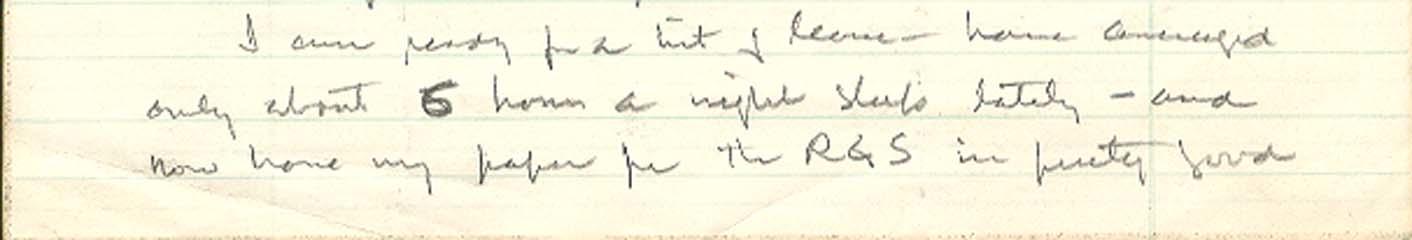 I am ready for a bit of leave – have averaged
only about 6 hours a night sleep lately – and
now have my paper for the RGS in pretty good